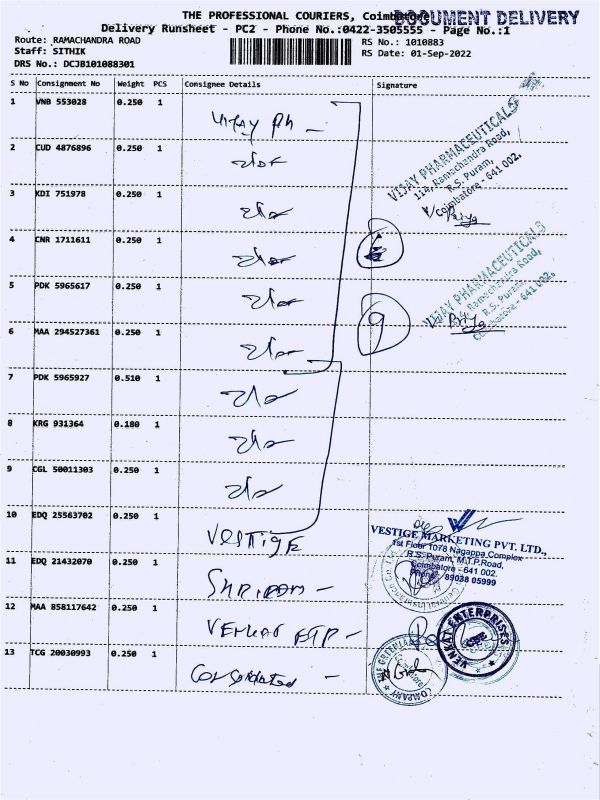 THE PROFESSIONAL COURIERS, Coimbatore
DOCUMENT DELIVERY
Delivery Runsheet - PC2 - Phone No.:0422-3505555 - Page No.:1
Route: RAMACHANDRA ROAD
Staff: SITHIK
DRS No.: DCJB101088301
RS No.: 1010883
RS Date: 01-Sep-2022
S No Consignment No Weight PCS Consignee Details Signature
1 VNB 553028 0.250 1 Vijay Ph -
2 CUD 4876896 0.250 1
3 KDI 751978 0.250 1
4 CNR 1711611 0.250 1
5 PDK 5965617 0.250 1
6 MAA 294527361 0.250 1
7 PDK 5965927 0.510 1
8 KRG 931364 0.180 1
9 CGL 50011303 0.250 1
10 EDQ 25563702 0.250 1 VESTIGE
11 EDQ 21432070 0.250 1 SHRIRAM -
12 MAA 858117642 0.250 1
13 TCG 20030993 0.250 1 Consolidated -
VIJAY PHARMACEUTICALS
114, Ramachandra Road,
R.S. Puram,
Coimbatore - 641 002.
Priya
6
VIJAY PHARMACEUTICALS
Ramachandra Road,
R.S. Puram,
Coimbatore - 641 002.
Priya
9
VESTIGE MARKETING PVT. LTD.,
1st Floor 1078 Nagappa Complex
R.S. Puram, M.T.P. Road,
Coimbatore - 641 002.
Phone : 89038 05999
VENKAT ENTERPRISES
COMPANY